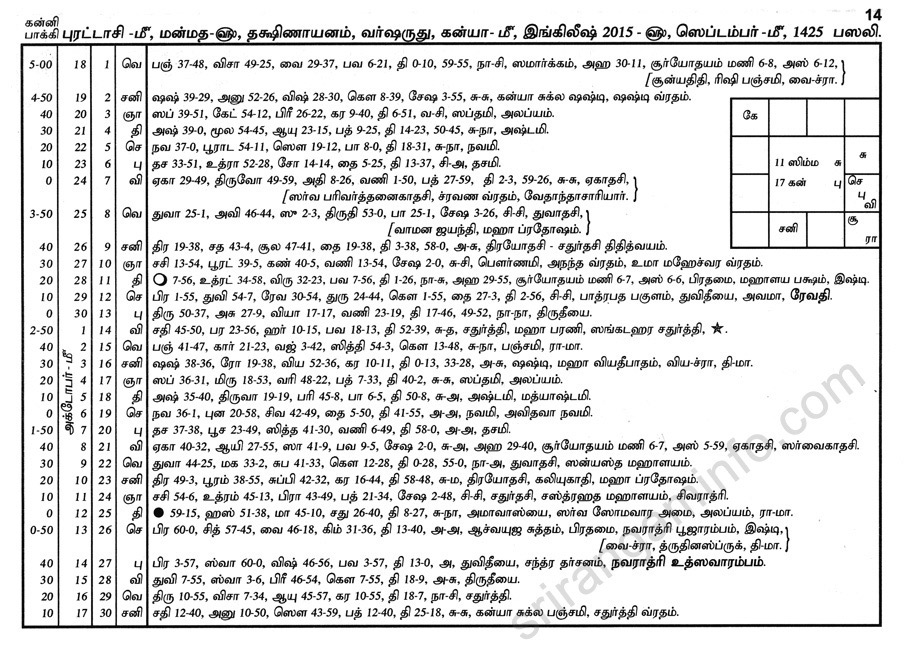 14
கன்னி
பாக்கி புரட்டாசி -மீ", மன்மத-ஹு, தக்ஷிணாயனம், வர்ஷருது, கன்யா- மீ", இங்கிலீஷ் 2015 - ஹு, ஸெப்டம்பர் -மீ", 1425 பஸலி.
5-00 18 1 வெ பஞ் 37-48, விசா 49-25, வை 29-37, பவ 6-21, தி 0-10, 59-55, நா-சி, ஸமார்க்கம், அஹ 30-11, சூர்யோதயம் மணி 6-8, அஸ் 6-12,
[சூன்யதிதி, ரிஷி பஞ்சமி, வை-ச்ரா.]
4-50 19 2 சனி ஷஷ் 39-29, அனு 52-26, விஷ் 28-30, கௌ 8-39, சேஷ 3-55, சு-சு, கன்யா சுக்ல ஷஷ்டி, ஷஷ்டி வ்ரதம்.
40 20 3 ஞா ஸப் 39-51, கேட் 54-12, பிரீ 26-22, கர 9-40, தி 6-51, வ-சி, ஸப்தமி, அலப்யம்.
30 21 4 தி அஷ் 39-0, மூல 54-45, ஆயு 23-15, பத் 9-25, தி 14-23, 50-45, சு-நா, அஷ்டமி.
20 22 5 செ நவ 37-0, பூராட 54-11, ஸௌ 19-12, பா 8-0, தி 18-31, சு-நா, நவமி.
10 23 6 பு தச 33-51, உத்ரா 52-28, சோ 14-14, தை 5-25, தி 13-37, சி-அ, தசமி.
0 24 7 வி ஏகா 29-49, திருவோ 49-59, அதி 8-26, வணி 1-50, பத் 27-59, தி 2-3, 59-26, சு-சு, ஏகாதசி,
[ஸர்வ பரிவர்த்தனைகாதசி, ச்ரவண வ்ரதம், வேதாந்தாசாரியார்.]
3-50 25 8 வெ துவா 25-1, அவி 46-44, ஸு 2-3, திருதி 53-0, பா 25-1, சேஷ 3-26, சி-சி, துவாதசி,
[வாமன ஜயந்தி, மஹா ப்ரதோஷம்.]
40 26 9 சனி திர 19-38, சத 43-4, சூல 47-41, தை 19-38, தி 3-38, 58-0, அ-சு, திரயோதசி - சதுர்தசி திதித்வயம்.
30 27 10 ஞா சசி 13-54, பூரட் 39-5, கண் 40-5, வணி 13-54, சேஷ 2-0, சு-சி, பௌர்ணமி, அநந்த வ்ரதம், உமா மஹேச்வர வ்ரதம்.
20 28 11 தி 7-56, உத்ரட் 34-58, விரு 32-23, பவ 7-56, தி 1-26, நா-சு, அஹ 29-55, சூர்யோதயம் மணி 6-7, அஸ் 6-6, பிரதமை, மஹாளய பக்ஷம், இஷ்டி.
10 29 12 செ பிர 1-55, துவி 54-7, ரேவ 30-54, துரு 24-44, கௌ 1-55, தை 27-3, தி 2-56, சி-சி, பாத்ரபத பகுளம், துவிதீயை, அவமா, ரேவதி.
0 30 13 பு திரு 50-37, அசு 27-9, வியா 17-17, வணி 23-19, தி 17-46, 49-52, நா-நா, திருதீயை.
2-50 1 14 வி சதி 45-50, பர 23-56, ஹர் 10-15, பவ 18-13, தி 52-39, சு-த, சதுர்த்தி, மஹா பரணி, ஸங்கடஹர சதுர்த்தி, ★.
40 2 15 வெ பஞ் 41-47, கார் 21-23, வஜ் 3-42, ஸித்தி 54-3, கௌ 13-48, சு-நா, பஞ்சமி, ரா-மா.
30 3 16 சனி ஷஷ் 38-36, ரோ 19-38, விய 52-36, கர 10-11, தி 0-13, 33-28, அ-சு, ஷஷ்டி, மஹா வியதீபாதம், விய-ச்ரா, தி-மா.
20 4 17 ஞா ஸப் 36-31, மிரு 18-53, வரி 48-22, பத் 7-33, தி 40-2, சு-சு, ஸப்தமி, அலப்யம்.
10 5 18 தி அஷ் 35-40, திருவா 19-19, பரி 45-8, பா 6-5, தி 50-8, சு-அ, அஷ்டமி, மத்யாஷ்டமி.
0 6 19 செ நவ 36-1, புன 20-58, சிவ 42-49, தை 5-50, தி 41-55, அ-அ, நவமி, அவிதவா நவமி.
1-50 7 20 பு தச 37-38, பூச 23-49, ஸித்த 41-30, வணி 6-49, தி 58-0, அ-அ, தசமி.
அக்டோபர் -மீ"
40 8 21 வி ஏகா 40-32, ஆயி 27-55, ஸா 41-9, பவ 9-5, சேஷ 2-0, சு-அ, அஹ 29-40, சூர்யோதயம் மணி 6-7, அஸ் 5-59, ஏகாதசி, ஸர்வைகாதசி.
30 9 22 வெ துவா 44-25, மக 33-2, சுப 41-33, கௌ 12-28, தி 0-28, 55-0, நா-அ, துவாதசி, ஸன்யஸ்த மஹாளயம்.
20 10 23 சனி திர 49-3, பூரம் 38-55, சுப்பி 42-32, கர 16-44, தி 58-48, சு-ம, திரயோதசி, கலியுகாதி, மஹா ப்ரதோஷம்.
10 11 24 ஞா சசி 54-6, உத்ரம் 45-13, பிரா 43-49, பத் 21-34, சேஷ 2-48, சி-சி, சதுர்தசி, சஸ்த்ரஹத மஹாளயம், சிவராத்ரி.
0 12 25 தி 59-15, ஹஸ் 51-38, மா 45-10, சது 26-40, தி 8-27, சு-நா, அமாவாஸ்யை, ஸர்வ ஸோமவார அமை, அலப்யம், ரா-மா.
0-50 13 26 செ பிர 60-0, சித் 57-45, வை 46-18, கிம் 31-36, தி 13-40, அ-அ, ஆச்வயுஜ சுத்தம், பிரதமை, நவராத்ரி பூஜாரம்பம், இஷ்டி,
[வை-ச்ரா, த்ருதினஸ்ப்ருக், தி-மா.]
40 14 27 பு பிர 3-57, ஸ்வா 60-0, விஷ் 46-56, பவ 3-57, தி 13-0, அ, துவிதீயை, சந்த்ர தர்சனம், நவராத்ரி உத்ஸவாரம்பம்.
30 15 28 வி துவி 7-55, ஸ்வா 3-6, பிரீ 46-54, கௌ 7-55, தி 18-9, அ-சு, திருதீயை.
20 16 29 வெ திரு 10-55, விசா 7-34, ஆயு 45-57, கர 10-55, தி 18-7, நா-சி, சதுர்த்தி.
10 17 30 சனி சதி 12-40, அனு 10-50, ஸௌ 43-59, பத் 12-40, தி 25-18, சு-சு, கன்யா சுக்ல பஞ்சமி, சதுர்த்தி வ்ரதம்.
கே
11 ஸிம்ம சு
17 கன் பு
சு
செ
பு
வி
சனி
சூ
ரா
srirangaminfo.com